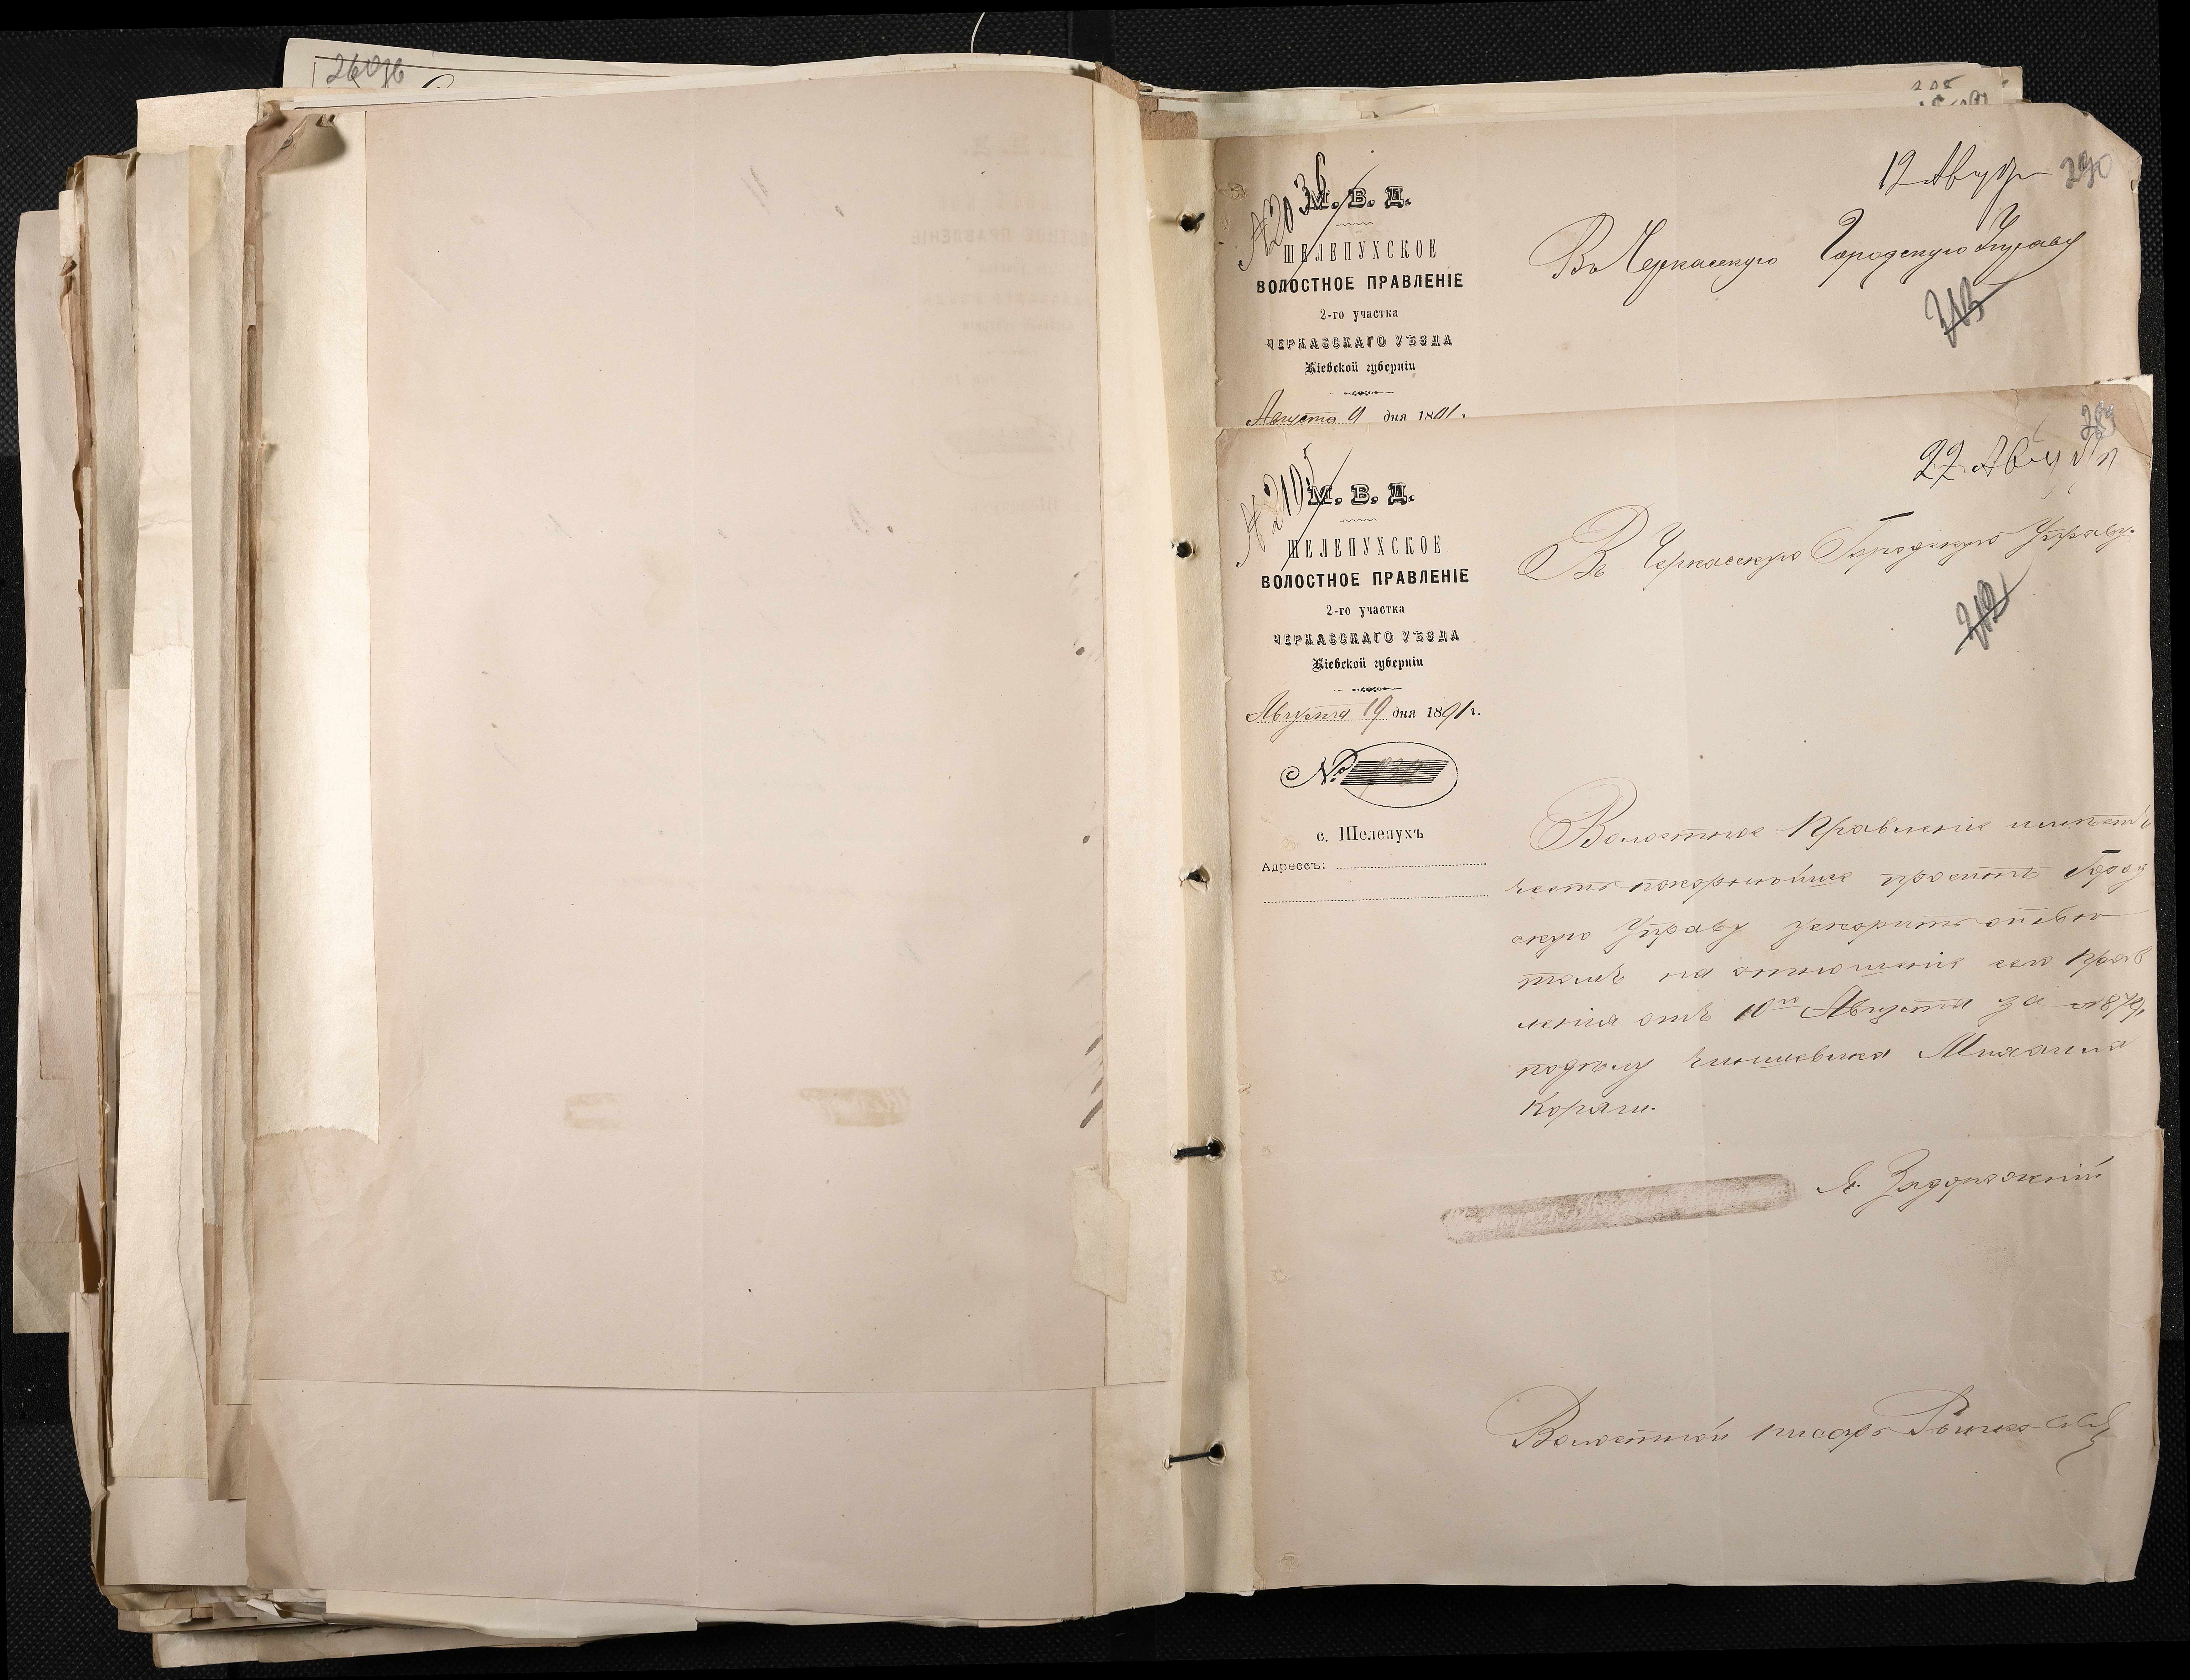 26036
290
12 Августа
№ 2036
М. В. Д.
ШЕЛЕПУХСКОЕ
ВОЛОСТНОЕ ПРАВЛЕНІЕ
2-го участка
ЧЕРКАССКАГО УѢЗДА
Кіевской губерніи
Августа 9 дня 1891 г.
Въ Черкасскую Городскую Управу
313
22 Августа
№ 2105
М. В. Д.
ШЕЛЕПУХСКОЕ
ВОЛОСТНОЕ ПРАВЛЕНІЕ
2-го участка
ЧЕРКАССКАГО УѢЗДА
Кіевской губерніи
Августа 19 дня 1891 г.
№
с. Шелепухъ
Адрессъ:
Въ Черкасскую Городскую Управу.
312
Волостное Правленіе имѣетъ
честь покорнѣйше просить Город
скую Управу ускорить отвѣ
томъ на отношеніе сего Прав
ленія отъ 10го Августа за №
подѣлу чиншевика Михаила
Коряги.
Я. Задорожний
Волостной писарь